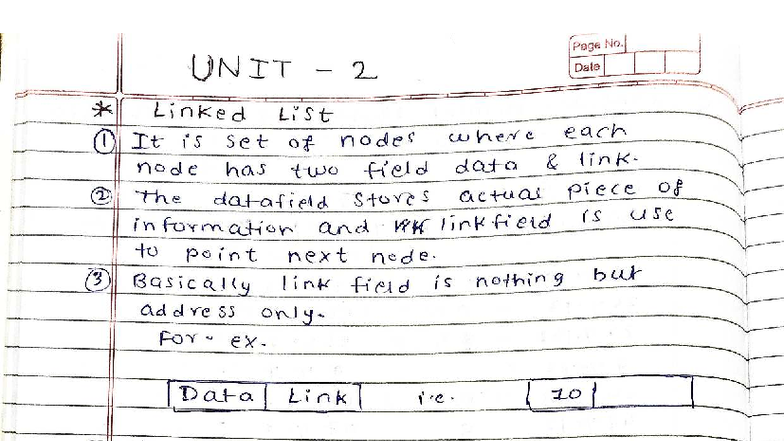 Page No.
Date
UNIT - 2
* Linked List
① It is set of nodes where each
node has two field data & link.
② The datafield stores actual piece of
information and linkfield is use
to point next node.
③ Basically link field is nothing but
address only.
For - ex.
Data Link i.e. 10